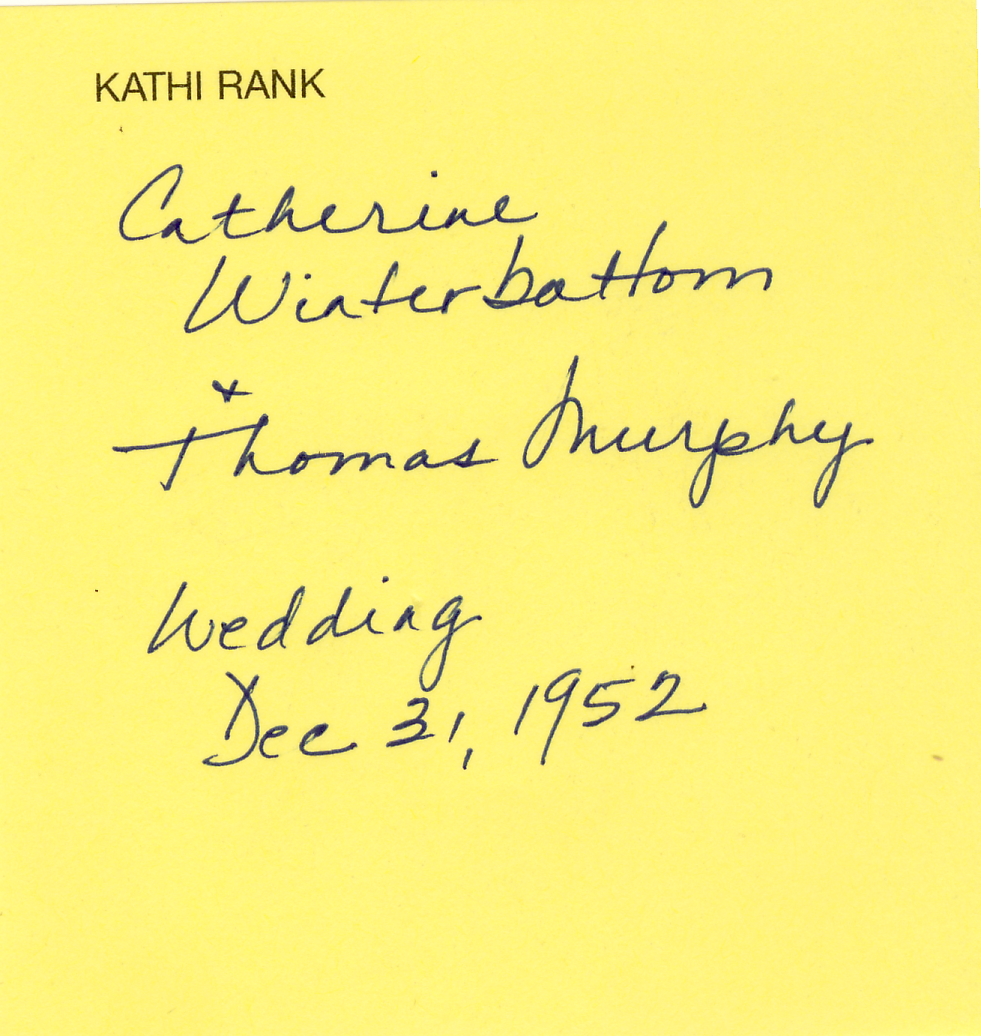 KATHI RANK
Catherine
Winterbottom
&
Thomas Murphy
Wedding
Dec 31, 1952